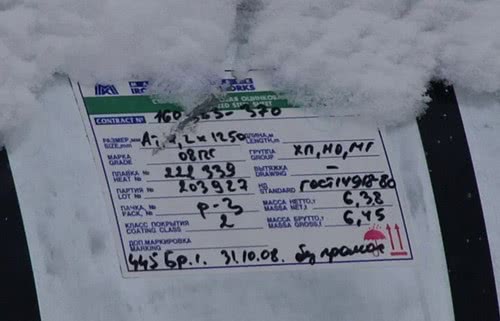 IRON WORKS
ОЦИНКОВ
STEEL SHEET
CONTRACT № 160 - 370
РАЗМЕР, мм SIZE, mm 2x1250 ДЛИНА, м LENGTH, m
МАРКА GRADE 08пс ГРУППА GROUP ХП, НО, МТ
ПЛАВКА № HEAT № 222939 ВЫТЯЖКА DRAWING –
ПАРТИЯ LOT № 203927 НД STANDARD ГОСТ14918-80
ПАЧКА, № PACK, № Р-3 МАССА НЕТТО, т MASSA NET, t 6,38
КЛАСС ПОКРЫТИЯ COATING CLASS 2 МАССА БРУТТО, т MASSA GROSS, t 6,45
ДОП. МАРКИРОВКА MARKING
445 Бр.1. 31.10.08.